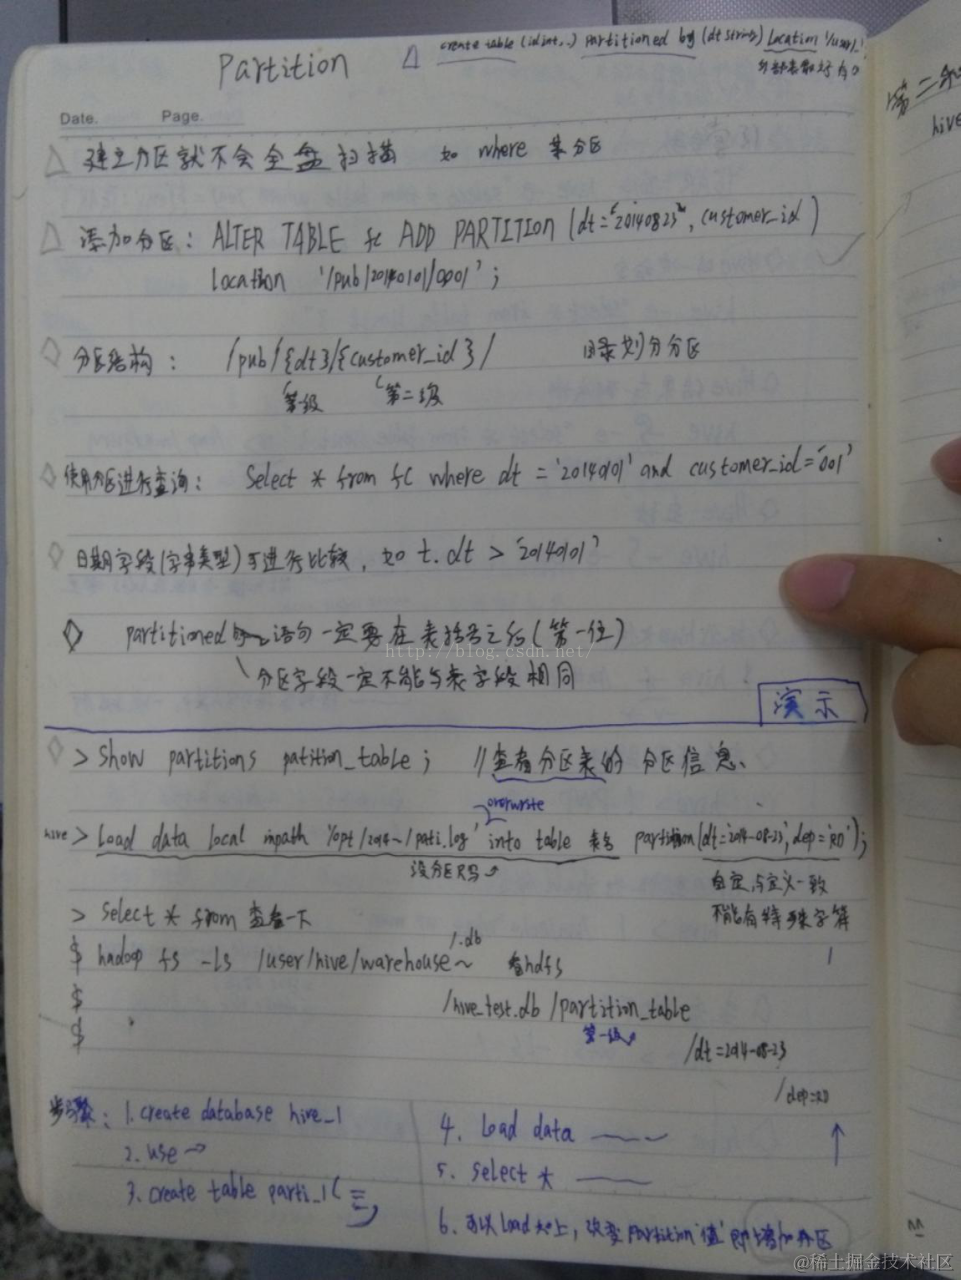 Partition △ create table (id int,..) Partitioned by (dt string) Location '/user/..'
外部表
Date. Page.
△ 建立分区就不会全盘扫描 如 where 某分区
△ 添加分区: ALTER TABLE fc ADD PARTITION (dt='20140823', customer_id)
location '/pub/20140101/0001';
◇ 分区结构: /pub/{dt}/{customer_id}/ 目录划分分区
第一级 第二级
◇ 使用分区进行查询: Select * from fc where dt = '20140101' and customer_id='001'
◇ 日期字段(字串类型)可进行比较, 如 t.dt > '20140101'
◇ partitioned by 语句一定要在表括号之后(第一位)
http://blog.csdn.net/
分区字段一定不能与表字段相同
演示
◇ > Show partitions patition_table; //查看分区表的 分区信息.
overwrite
hive > Load data local inpath '/opt/2014~/pati.log' into table 表名 partition(dt='2014-08-23', dep='RD');
没分区只写
自定,与定义一致
不能有特殊字符
> Select * from 查看一下
/.db
$ hadoop fs -ls /user/hive/warehouse~ 看hdfs
$ /hive_test.db/partition_table
第一级
$ /dt=2014-08-23
/dep=RD
步骤: 1. create database hive_1
2. use
3. create table parti_1(
4. Load data
5. select *
6. 可以Load如上, 改变partition'值'即增加分区
第二
hive
@稀土掘金技术社区